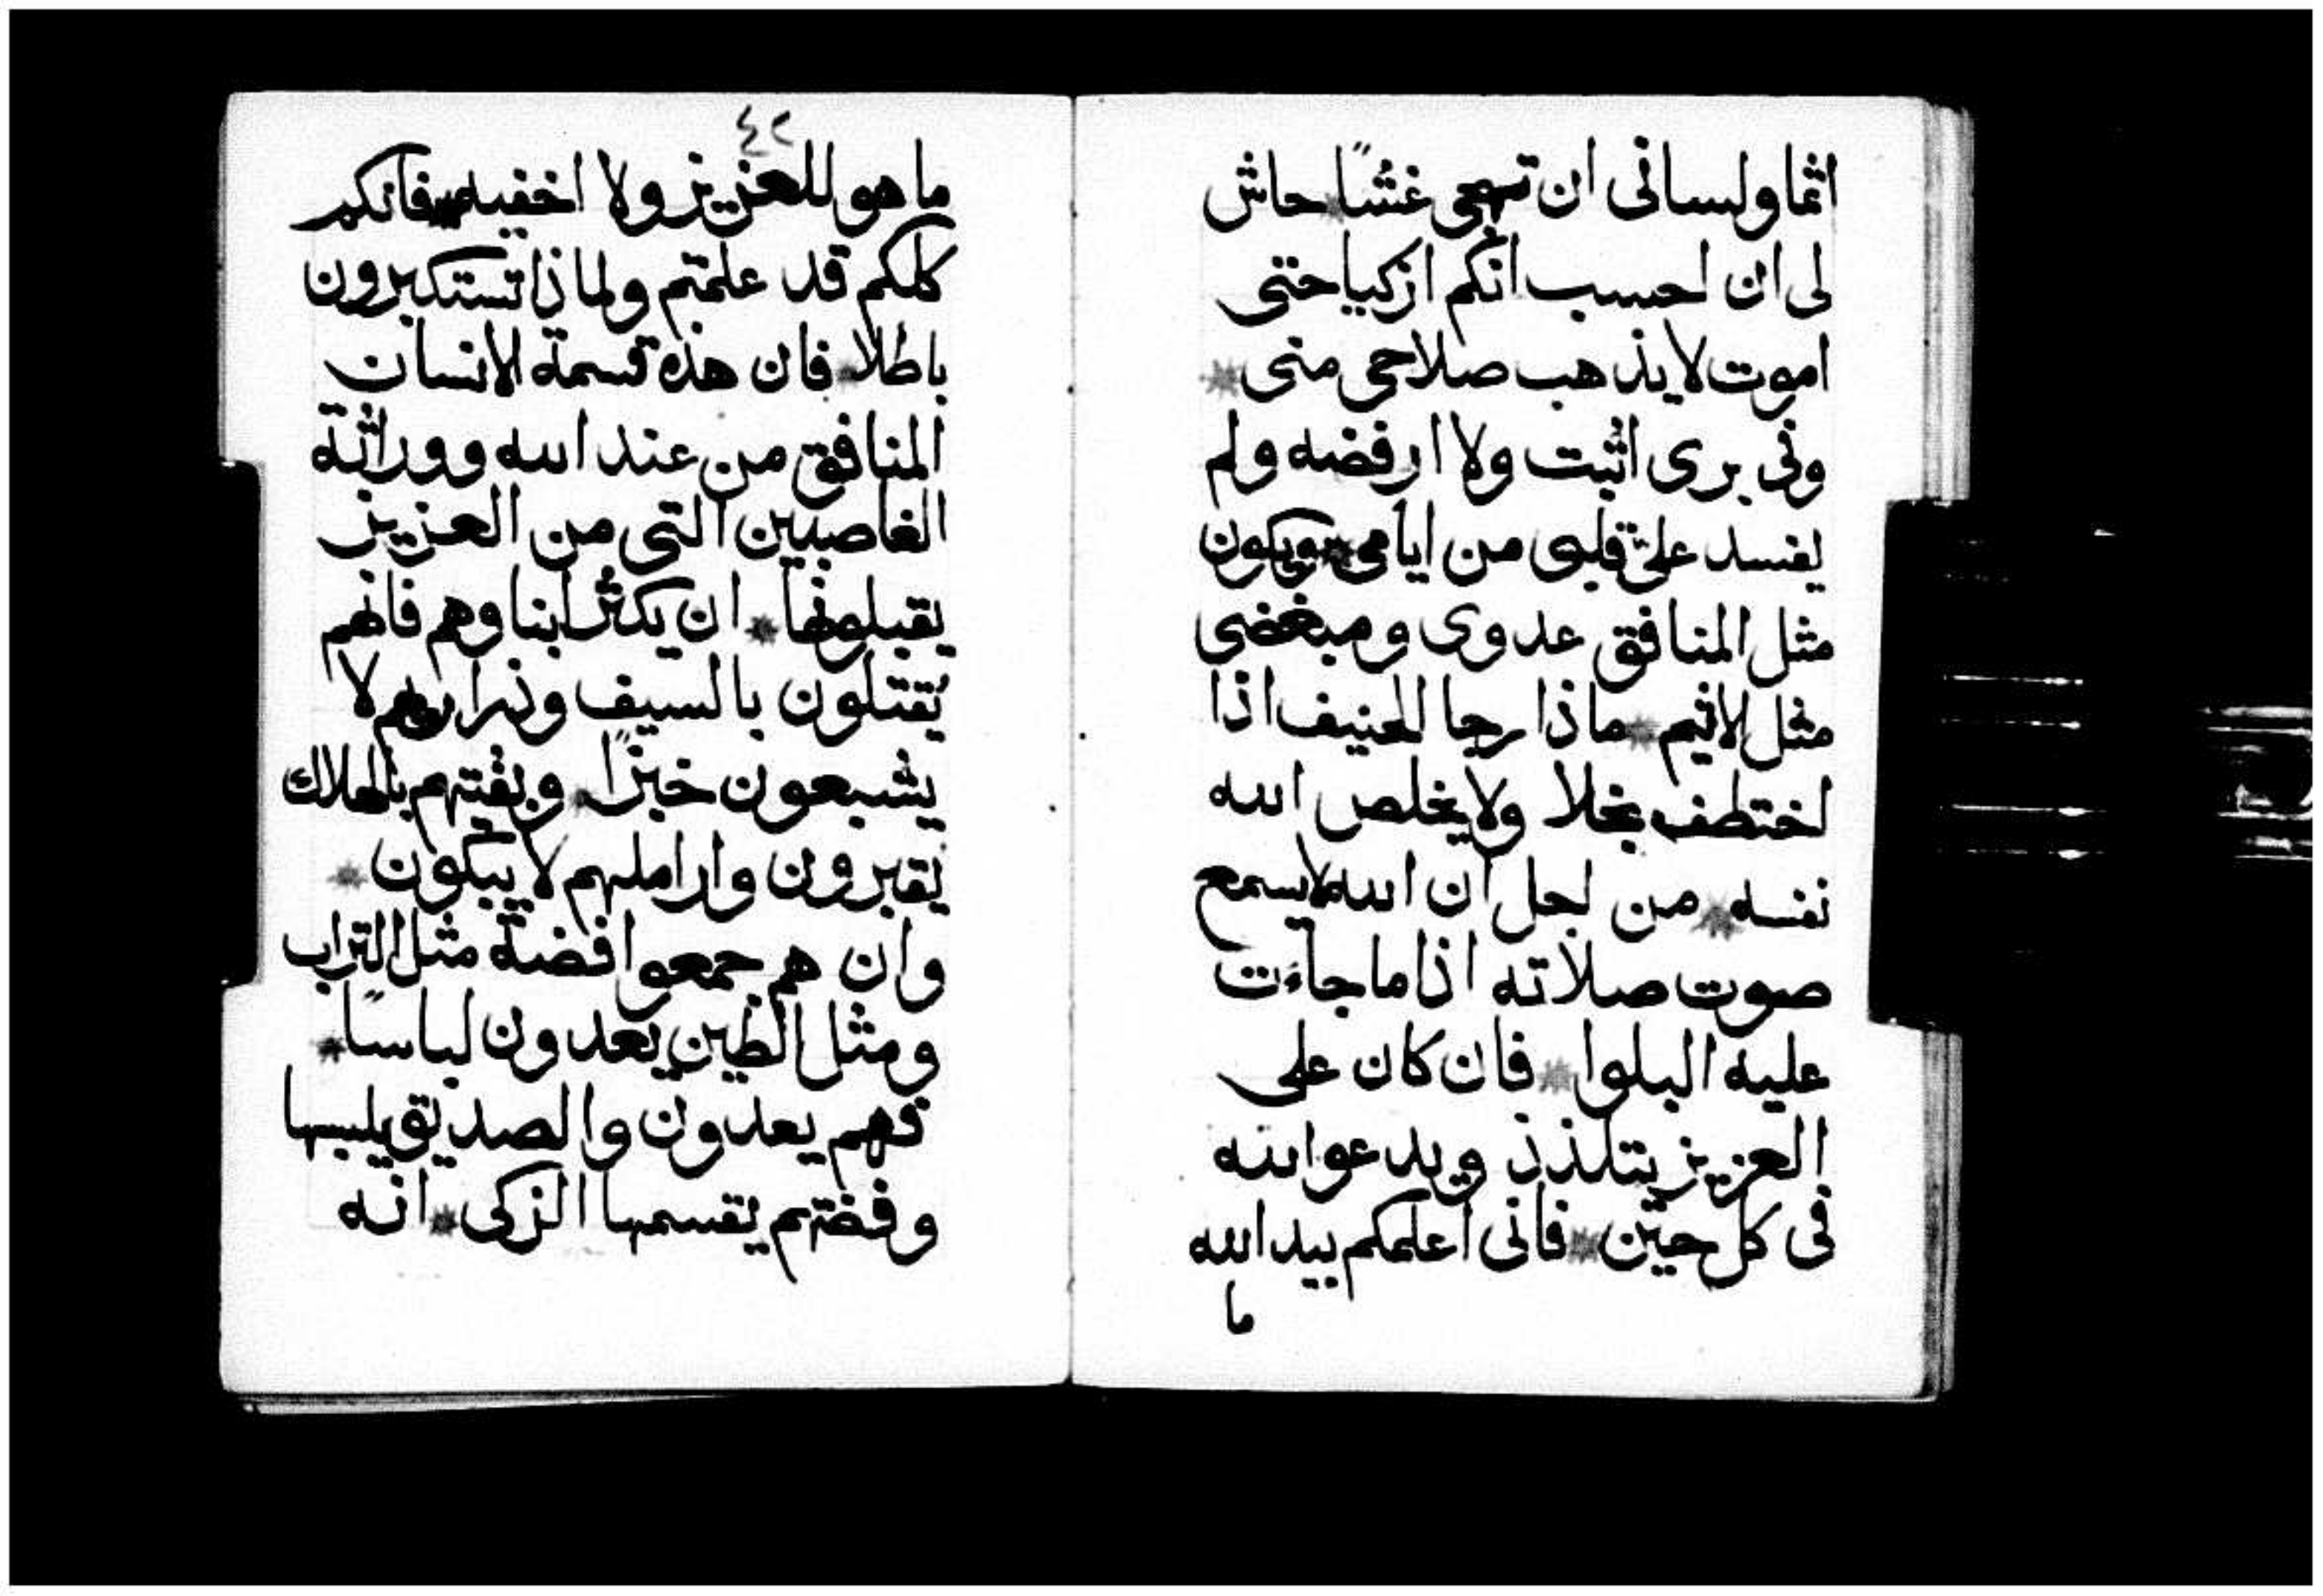 اثما ولساني ان تهجى غشًا حاش
لى ان احسب انكم ازكيا حتى
اموت لا يذهب صلاحى منى
وفى برى اثبت ولا ارفضه ولم
يفسد علىّ قلبى من ايامى ويكون
مثل المنافق عدوى ومبغضى
مثل الاثيم ماذا رجا الحنيف اذا
اختطف بخلا ولا يخلص الله
نفسه من اجل ان الله لا يسمع
صوت صلاته اذا ما جاءت
عليه البلوا فان كان على
العزيز يتلذذ ويدعوا الله
فى كل حين فانى اعلمكم بيد الله
ما
٤٢
ما هو للعزيز ولا اخفيه فانكم
كلكم قد علمتم ولماذا تستكبرون
باطلا فان هذه قسمة الانسان
المنافق من عند الله ووراثة
الغاصبين التى من العزيز
يقبلونها ان يكثر ابناوهم فانهم
يقتلون بالسيف وذراريهم لا
يشبعون خبزًا وبقيتهم بالهلاك
يقبرون واراملهم لا يبكون
وان هم جمعوا فضة مثل التراب
ومثل الطين يعدون لباسًا
فهم يعدون والصديق يلبسها
وفضتهم يقسمها الزكى انه